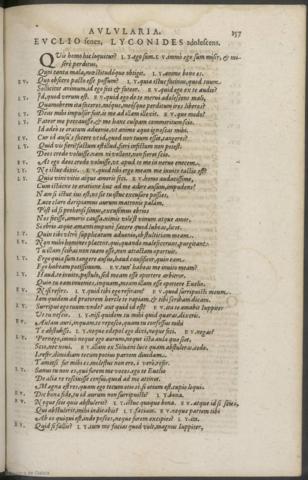 AVLVLARIA. 157
EVCLIO senex, LYCONIDES adolescens.
QVis homo hic loquitur? LY. ego sum. EV. immò ego sum miser, & mi
serè perditus,
Cui tanta mala, mœstitudóque obtigit. LY. animo bono es.
EV. Quo obsecro pacto esse possum? LY. quia istuc facinus, quod tuum
Sollicitat animum, id ego feci & fateor. EV. quid ego ex te audio?
LY. Id, quod verum est. EV. quid ego de te merui adolescens mali,
Quamobrem ita faceres, méque, meósque perditum ires liberos?
LY. Deus mihi impulsor fuit, is me ad illam illexit. EV. quo modo?
LY. Fateor me peccauisse, & me hanc culpam commeritum scio.
Id adeò te oratum aduenio, vt animo æquo ignoscas mihi.
EV. Cur id ausus facere vt id, quod non tuum esset, tangeres?
LY. Quid vis fieri? factum est illud, fieri infectum non potest.
Deos credo voluisse. nam ni vellent, non fieret, scio.
EV. At ego deos credo voluisse, vt apud te me in neruo enecem.
LY. Ne istuc dixis. EV. quid tibi ergo meam me inuito tactio est?
LY. Quia vini vitio atque amoris feci. EV. homo audacissime,
Cum istacine te oratione huc ad me adire ausum, impudens?
Nam si istuc ius est, vt tu istuc excusare possies,
Luce claro deripiamus aurum matronis palàm.
Post id si prehensi simus, excusemus ebrios
Nos fecisse, amoris causa. nimis vile est vinum atque amor,
Si ebrio atque amanti impunè facere quod lubeat, licet.
LY. Quin tibi vltrò supplicatum aduenio, ob stultitiam meam.
EV. Non mihi homines placent, qui, quando malefecerunt, purgitant.
Tu illam scibas non tuam esse, non attactam oportuit.
LY. Ergo quia sum tangere ausus, haud causificor, quin eam
Ego habeam potissimum. EV. tun' habeas me inuito meam?
LY. Haud te inuito postulo, sed meam esse oportere arbitror.
Quin tu eam inuenies, inquam, meam illam esse oportere Euclio.
EV. Nisi refers. LY. quid tibi ego referam? EV. quod surripuisti meum.
Iam quidem ad prætorem hercle te rapiam, & tibi scribam dicam.
LY. Surripui ego tuum? vnde? aut quid id est? EV. ita te amabit Iuppiter
Vt tu nescis. LY. nisi quidem tu mihi, quid quæras, dixeris.
EV. Aulam auri, inquam, te reposco, quam tu confessus es mihi
Te abstulisse. LY. neque edepol ego dixi, neque feci. EV. negas?
LY. Pernego, immò neque ego aurum, neque istæc aula quæ siet,
Scio, nec noui. EV. illam ex Siluani luco quam abstuleras, cedo.
I, refer. dimidiam tecum potius partem diuidam.
Tametsi fur mihi es, molestus non ero. i verò, refer.
LY. Sanus tu non es, qui furem me voces. ego te Euclio
De alia re resciuisse censui, quod ad me attinet.
Magna est res, quam ego tecum otiosè, si otium est, cupio loqui.
EV. Dic bona fide, tu id aurum non surripuisti? LY. bona.
EV. Neque scis quis abstulerit? LY. istuc quoque bona. EV. atque id si scies,
Qui abstulerit, mihi indicabis? LY. faciam. EV. neque partem tibi
Ab eo, quiqui est, inde posces, neque furem excipies? LY. ita.
EV. Quid si fallis? LY. tum me faciat quod vult, magnus Iuppiter,